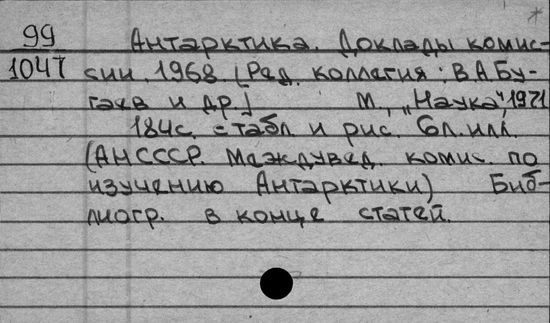 99 Антарктика. Доклады комис-
1047 сии. 1968. [Ред. коллегия: В.А.Бу-
гаев и др.] М., „Наука”, 1971
184с. с табл и рис. 6л.илл.
(АН СССР. Междувед. комис. по
изучению Антарктики) Биб-
лиогр. в конце статей.